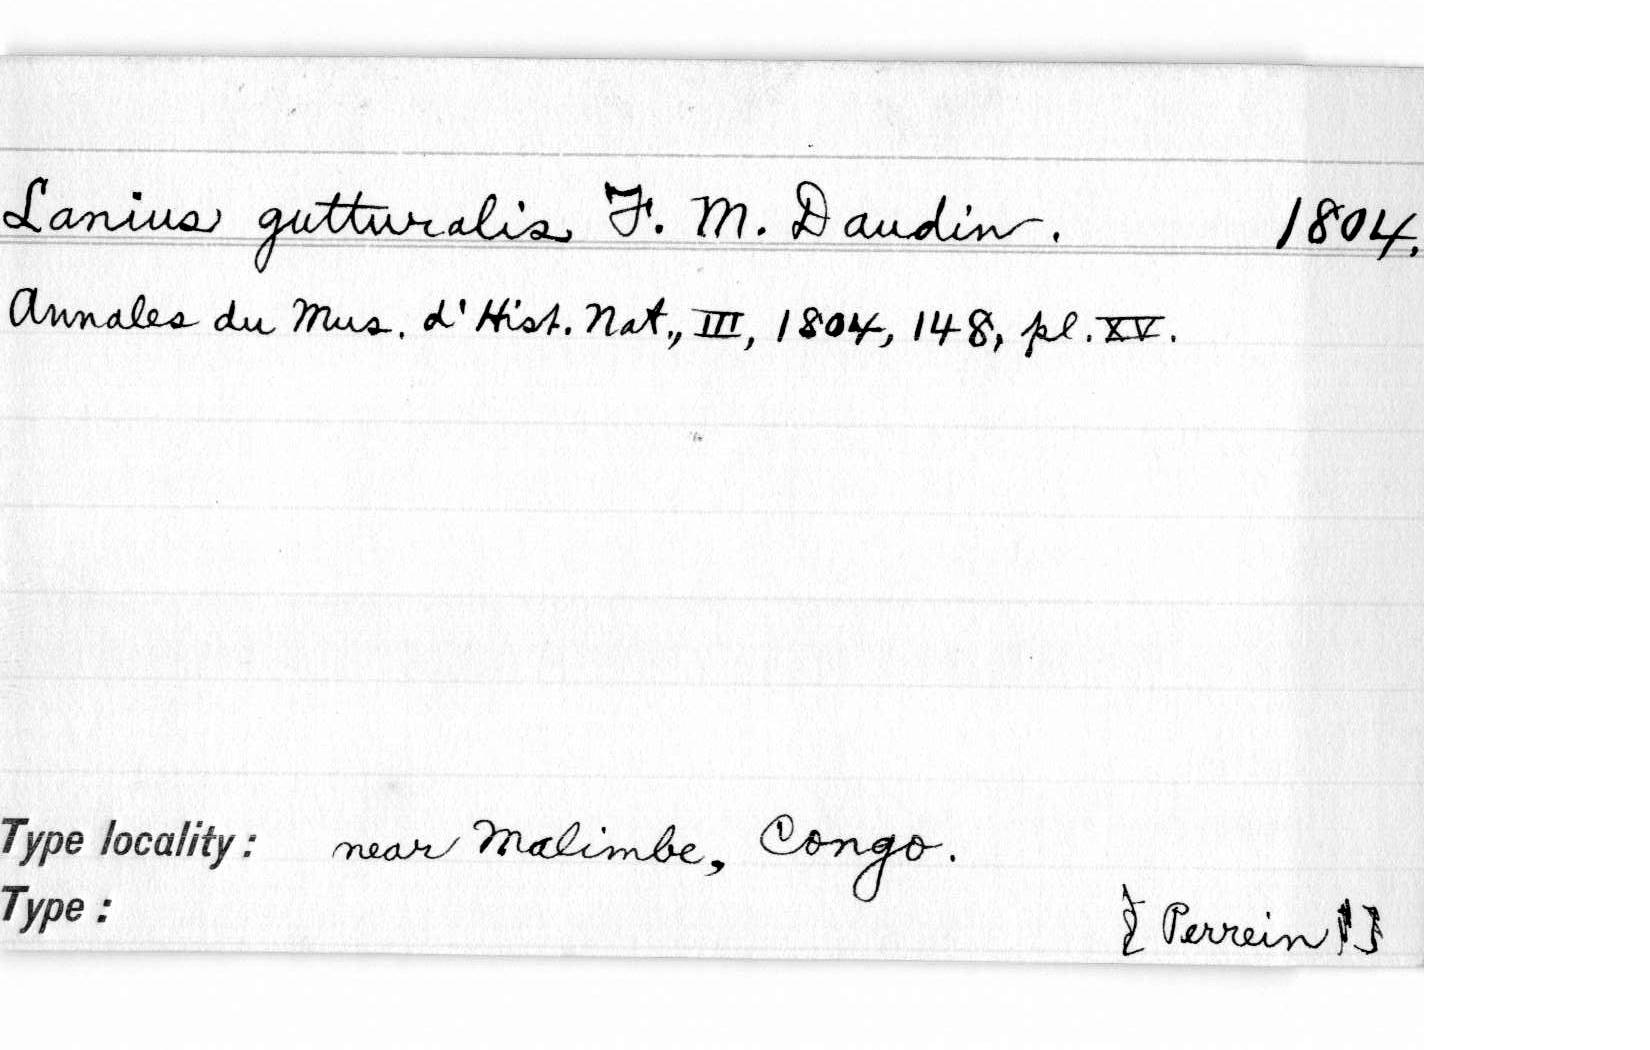 Lanius gutturalis F. M. Daudin. 1804.
Annales du Mus. d'Hist. Nat., III, 1804, 148, pl. XV.
Type locality: near Malimbe, Congo.
Type: { Perrein }